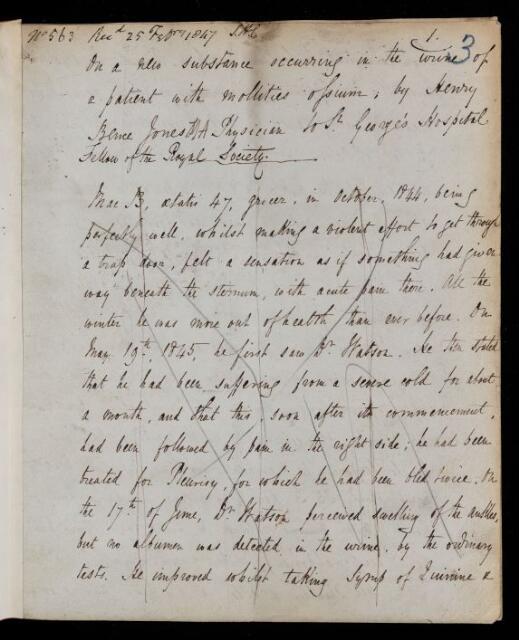 No 563 Recd 25 Febry 1847 S.H.C. 1.
3
On a new substance occurring in the Urine of
a patient with mollities ossium; by Henry
Bence Jones MA Physician to St George's Hospital
Fellow of the Royal Society.
Mac B, ætatis 47, grocer, in October, 1844, being
perfectly well, whilst making a violent effort to get through
a trap door, felt a sensation as if something had given
way beneath the sternum, with acute pain there. All the
winter he was more out of health than ever before. On
May 19th, 1845, he first saw Dr Watson. He then stated
that he had been suffering from a severe cold for about
a month, and that this, soon after its commencement,
had been followed by pain in the right side; he had been
treated for Pleurisy, for which he had been bled twice. On
the 17th of June, Dr Watson perceived swelling of the ankles,
but no albumen was detected in the urine, by the ordinary
tests. He improved whilst taking Syrup of Quinine &